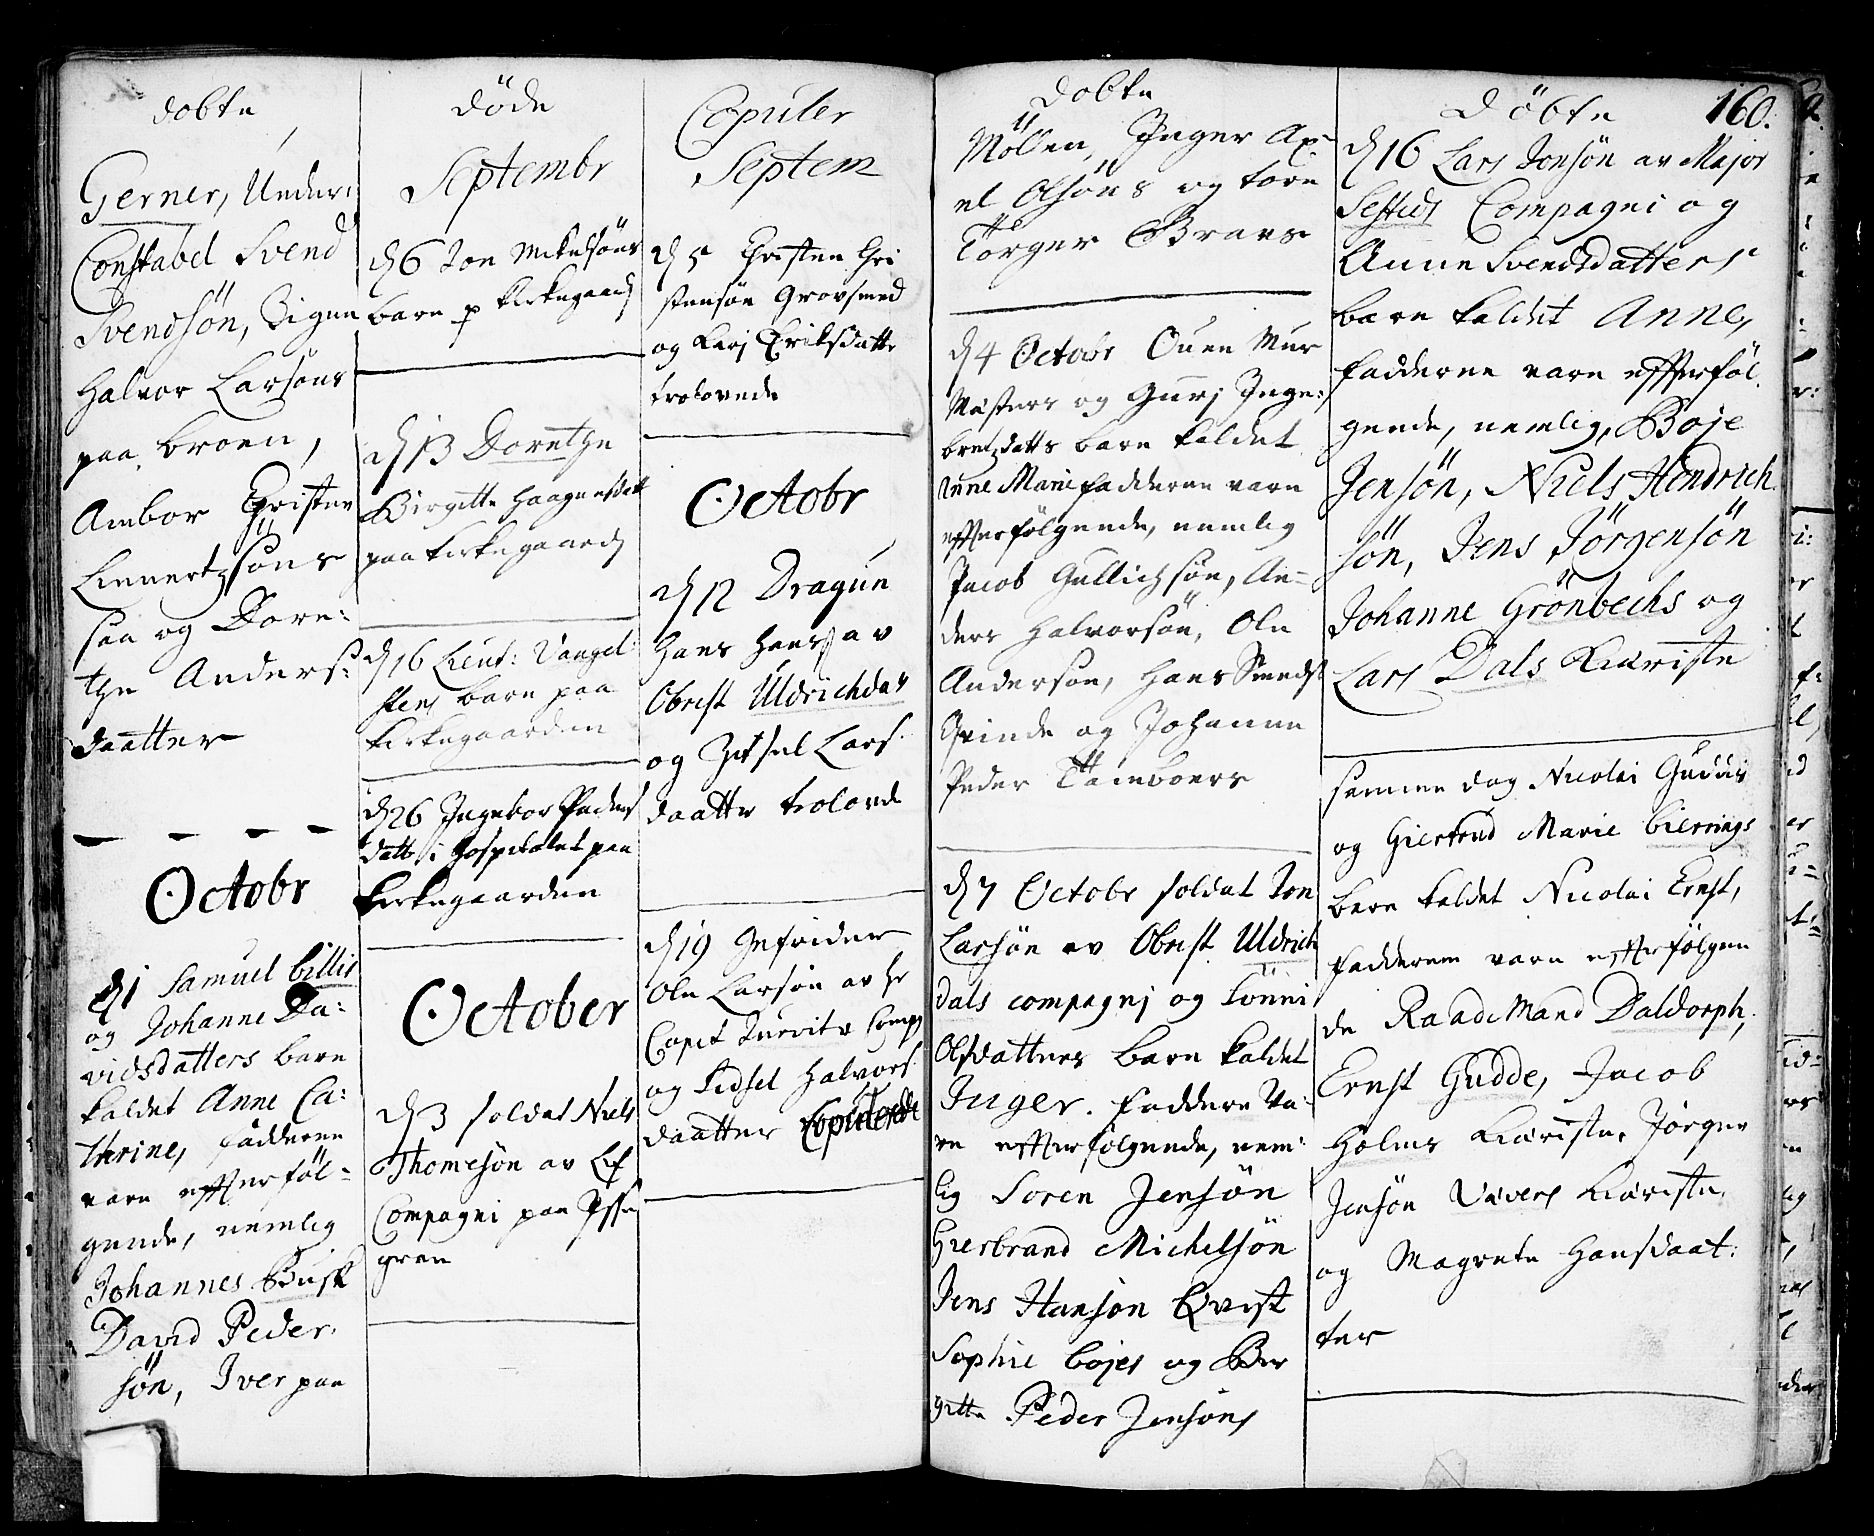 dobte
Gerner, Under:
Constabel Svend
Svendsön, Signe
Halvor Larsöns
paa broen,
Ambor Christen
Linnertzsöns
saa og Dore:
the Anders:
daatter
Octobr
d 1 Samuel Gillis
og Johanne Da:
vidsdatters barn
kaldet Anne Ca:
thrine, fadderne
vare effterföl=
gende, nemlig
Johannes Busk
David Peder
sön, Iver paa
döde
Septembr
d 6 Jon Mikelsöns
barn p kirkegaard
d 13 Dorethe
Birgitte Haagensdatt
paa kirkegaard
d 16 Lieut: Vangel
stens barn paa
kirkegaarden
d 26 Ingebor Peders
datt i Hospitalet paa
kirkegaarden
October
d 3 soldat Niels
Thomesön av Lif
Compagni paa Isse
gran
Copuler
Septem
d 5 Christen Chri
stensön Grovsmed
og Karj Eriksdatter
trolovede
Octobr
d 12 Dragun
Hans Hans av
Obrist Uldrichdas
og Zitsel Lars
daatter trolovd
d 19 Gefrider
Ole Larsön av Hr
Capit Compag
og Sidsel Halvors
daatter Copulerede
dobte
Möllen, Inger Ax=
el Olsöns og tore
Törger Braes
d 4 Octobr Ouen Mur
Mesters og Gurj Inge:
bretzdatts barn kaldet
Anne Marie fadderne vare
effterfölgende, nemlig
Jacob Gullichsön, An=
ders Halvorsön, Ole
Andersön, Hans Smeds
Qvinde og Johanne
Peder Tamboers
d 7 Octobr soldat Jon
Larsön av Obrist Uldrich
dals compagnj og Lönni
Olsdatters barn kaldet
Inger. Faddere Va:
re effterfölgende, nem:
lig Soren Jensön
Gierbrand Michelsön
Jens Hansön Qvist
Sophie bojes og Bir
gitte Peder Jensöns
Döbte 160.
d 16 Lars Jonsön av Major
Sesteds Compagni og
Anne Svendsdatters
barn kaldet Anne,
fadderne vare effterföl
gende, nemlig, Boje
Jensön, Niels Hendrich
sön, Jens Jörgensön
Johanne Grönbechs og
Lars Dals Kiæriste
samme dag Nicolai Gudes
og Giertrud Marie bierrings
barn kaldet Nicolai Ernst,
fadderne vare effterfölgen
de Raadmand Daldorph,
Ernst Gudde, Jacob
Holms Kiæriste, Jörgen
Jensön Vævers Kiæriste,
og Magrete Hansdaat:
ter